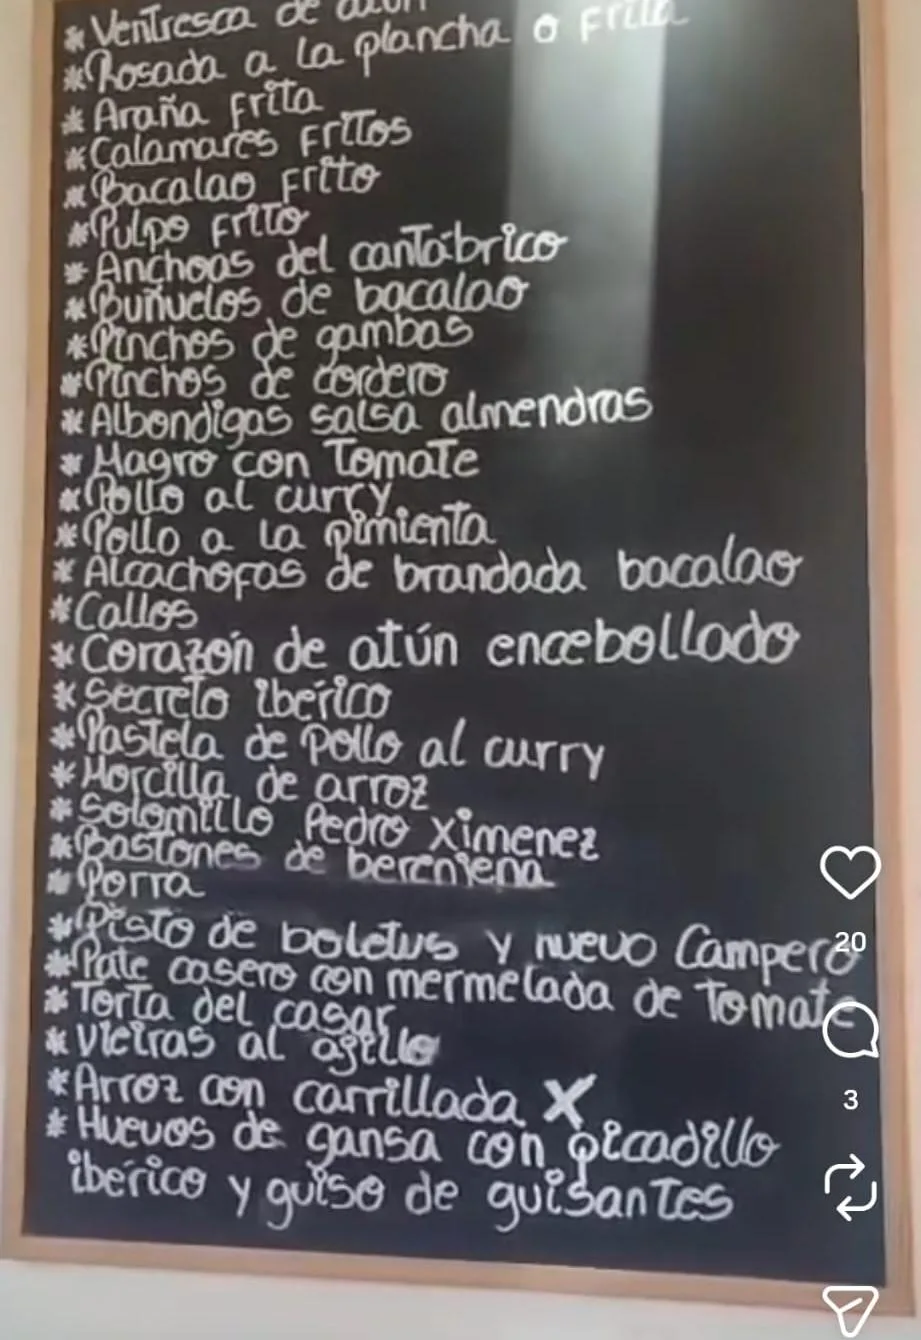 * Ventresca de atún
* Rosada a la plancha o frita
* Araña frita
* Calamares fritos
* Bacalao frito
* Pulpo frito
* Anchoas del cantábrico
* Buñuelos de bacalao
* Pinchos de gambas
* Pinchos de cordero
* Albondigas salsa almendras
* Magro con tomate
* Pollo al curry
* Pollo a la pimienta
* Alcachofas de brandada bacalao
* Callos
* Corazón de atún encebollado
* Secreto ibérico
* Pastela de pollo al curry
* Morcilla de arroz
* Solomillo Pedro Ximenez
* Bastones de berenjena
* Porra
* Pisto de boletus y nuevo Campero
20
* Pate casero con mermelada de tomate
* Torta del casar
* Vieiras al ajillo
* Arroz con carrillada X
3
* Huevos de gansa con picadillo
ibérico y guiso de guisantes